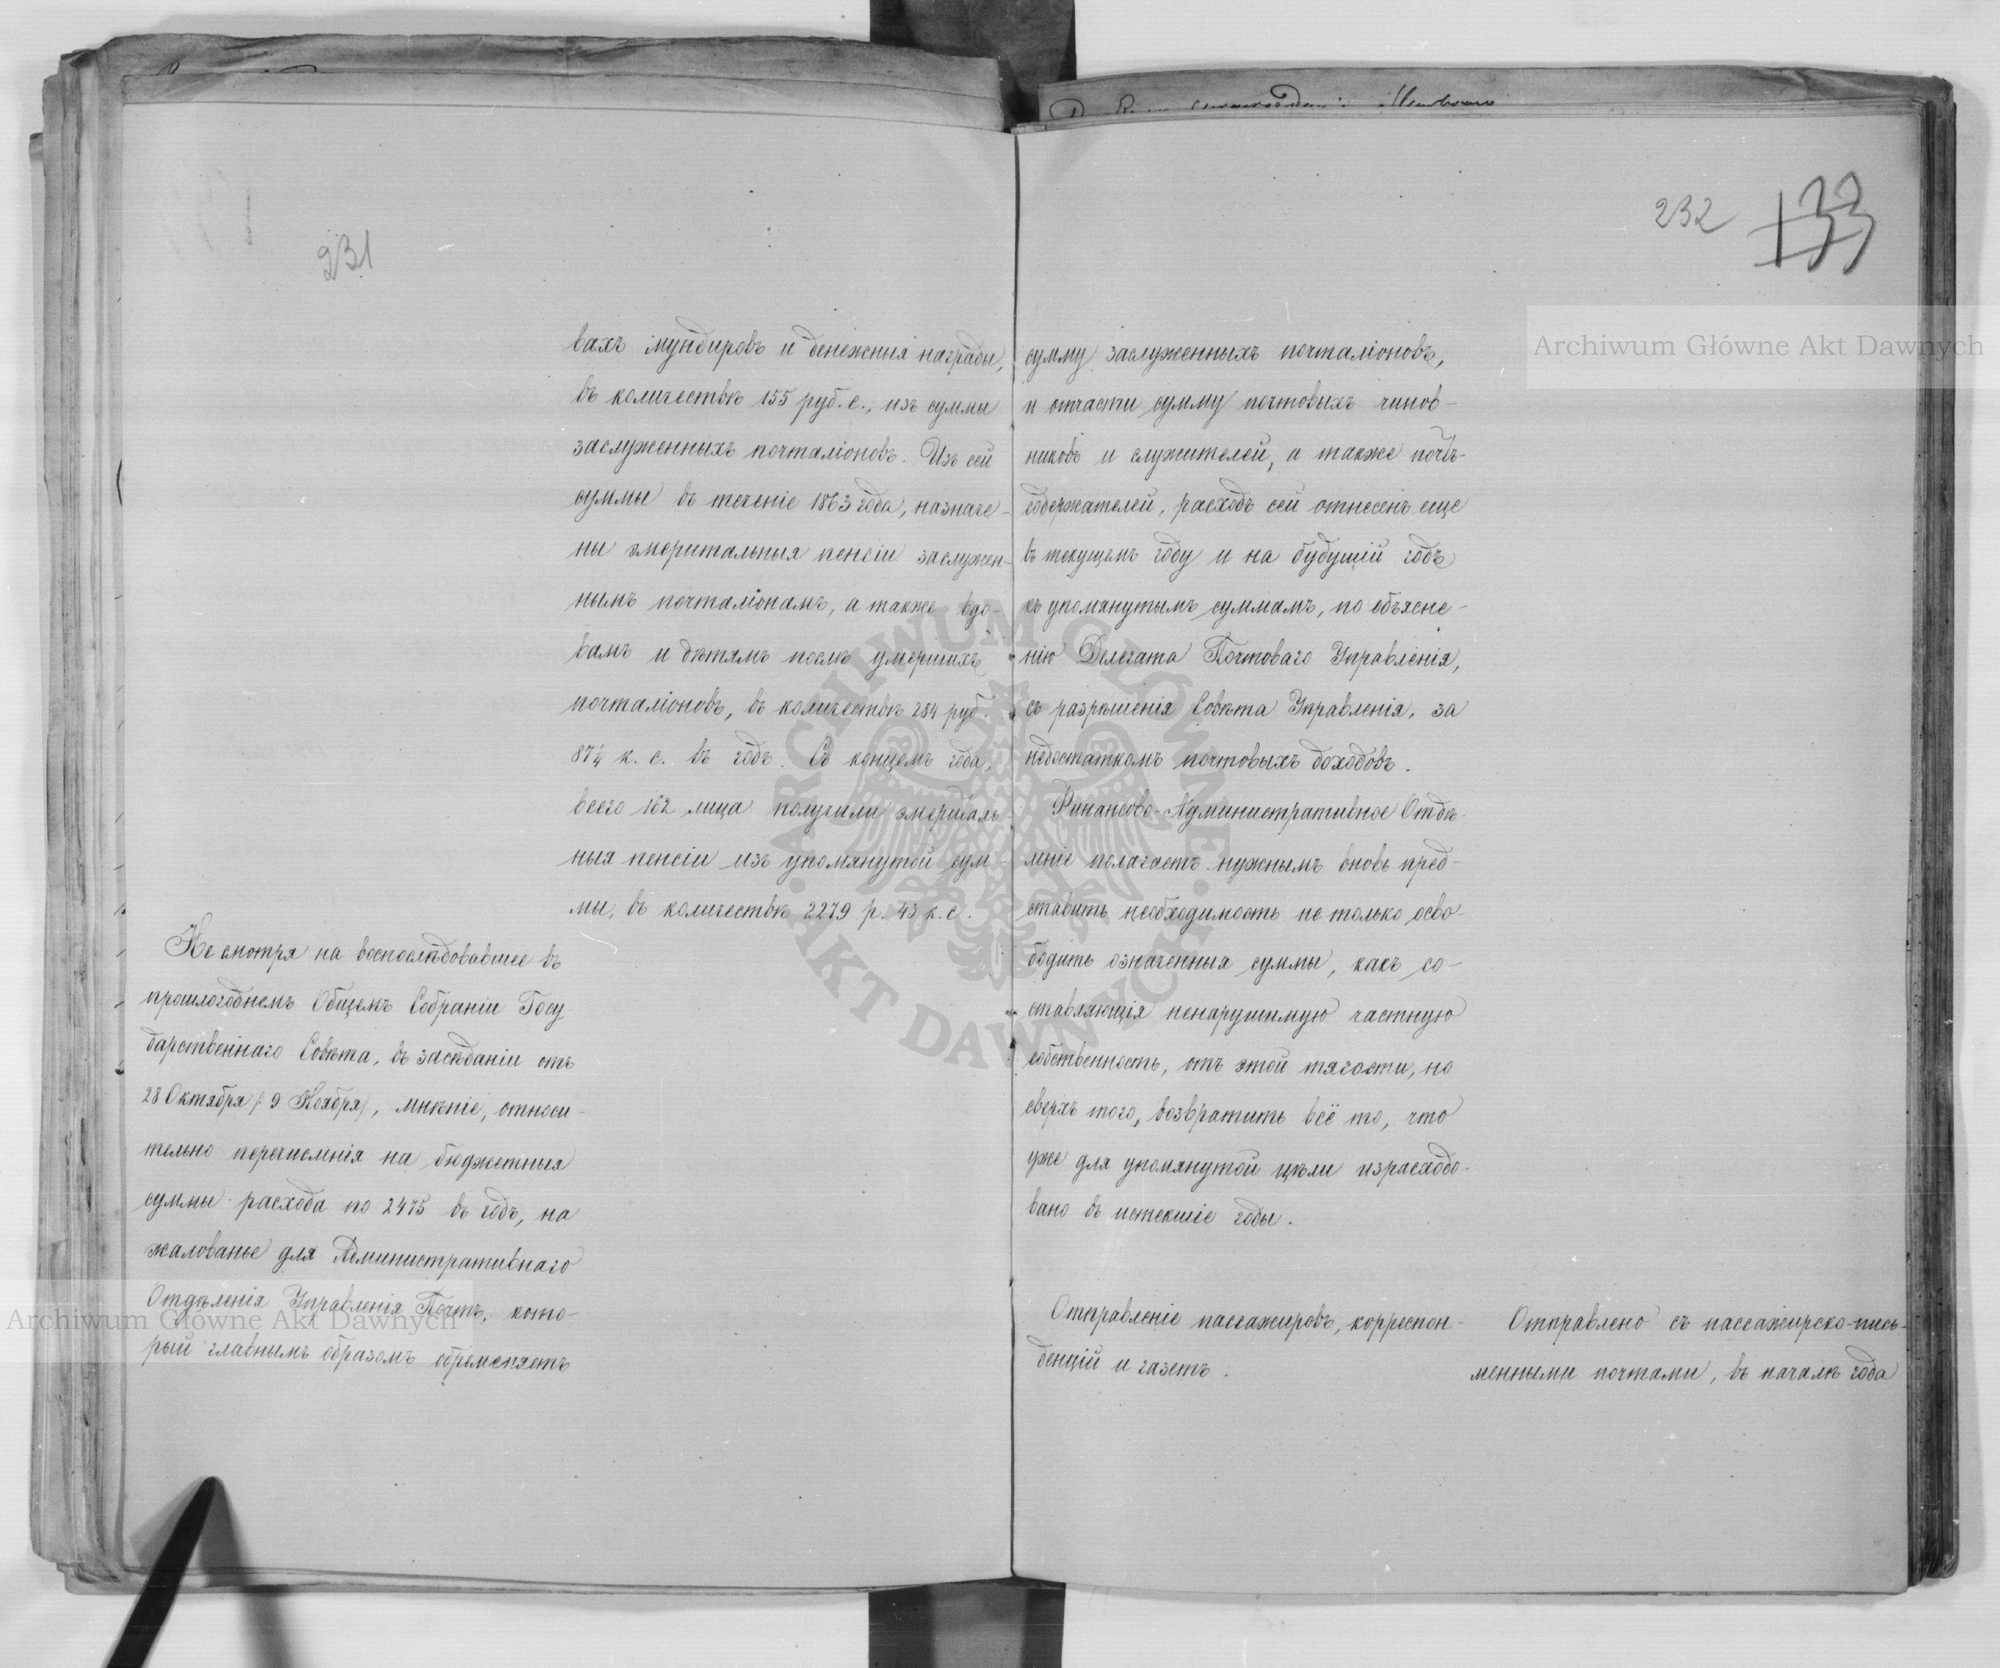 231
вахъ мундировъ и денежныя награды,
въ количествѣ 155 руб. с., изъ суммы
заслуженныхъ почталіоновъ. Изъ сей
суммы въ теченіе 1863 года, назначе-
ны эмеритальныя пенсіи заслужен-
нымъ почталіонамъ, а также вдо-
вамъ и дѣтямъ послѣ умершихъ
почталіоновъ, въ количествѣ 284 руб.
87¼ к. с. въ годъ. Съ концемъ года,
всего 162 лица получили эмериталь-
ныя пенсіи изъ упомянутой сум-
мы, въ количествѣ 2279 р. 43 к. с.
Не смотря на воспослѣдовавшее въ
прошлогоднемъ Общемъ Собраніи Госу
дарственнаго Совѣта, въ засѣданіи отъ
28 Октября /: 9 Ноября/, мнѣніе, относи-
тельно перечисленія на бюджетныя
суммы расхода по 2475 въ годъ, на
жалованье для Административнаго
Отдѣленія Управленія Почтъ, кото-
рый главнымъ образомъ обременяетъ
232 133
сумму заслуженныхъ почталіоновъ,
и отчасти сумму почтовыхъ чинов-
никовъ и служителей, а также почтъ-
содержателей, расходъ сей отнесенъ еще
въ текущемъ году и на будущій годъ
къ упомянутымъ суммамъ, по объясне-
нію Делегата Почтоваго Управленія,
съ разрѣшенія Совѣта Управленія, за
недостаткомъ почтовыхъ доходовъ.
Финансово-Административное Отдѣ-
леніе полагаетъ нужнымъ вновь пред-
ставить необходимость не только осво-
бодить означенныя суммы, какъ со-
ставляющія ненарушимую частную
собственность, отъ этой тягости, но
сверхъ того, возвратить всё то, что
уже для упомянутой цѣли израсходо-
вано въ истекшіе годы.
Отправленіе пассажировъ, корреспон-
денцій и газетъ.
Отправлено съ пассажирско-пись-
менными почтами, въ началѣ года
Archiwum Główne Akt Dawnych
Archiwum Główne Akt Dawnych
ARCHIWUM GŁÓWNE AKT DAWNYCH